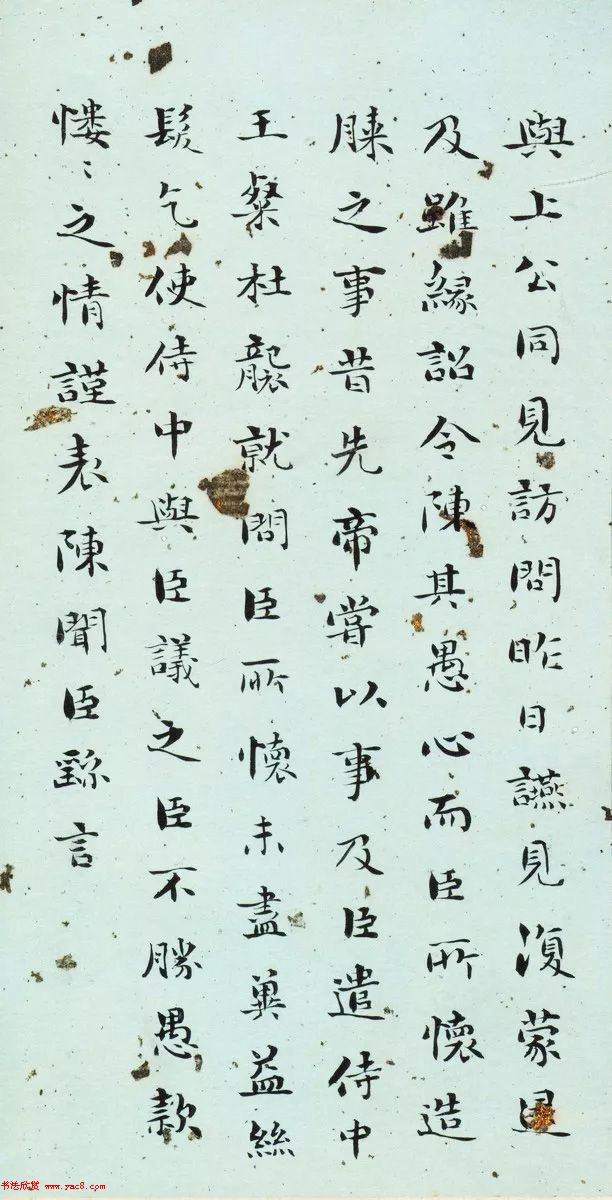 與上公同見訪問昨日讌見復蒙逮
及雖緣詔令陳其愚心而臣所懷造
膝之事昔先帝嘗以事及臣遣侍中
王粲杜襲就問臣所懷未盡冀益絲
髮乞使侍中與臣議之臣不勝愚款
慺〻之情謹表陳聞臣繇言
书法欣赏 www.yac8.com